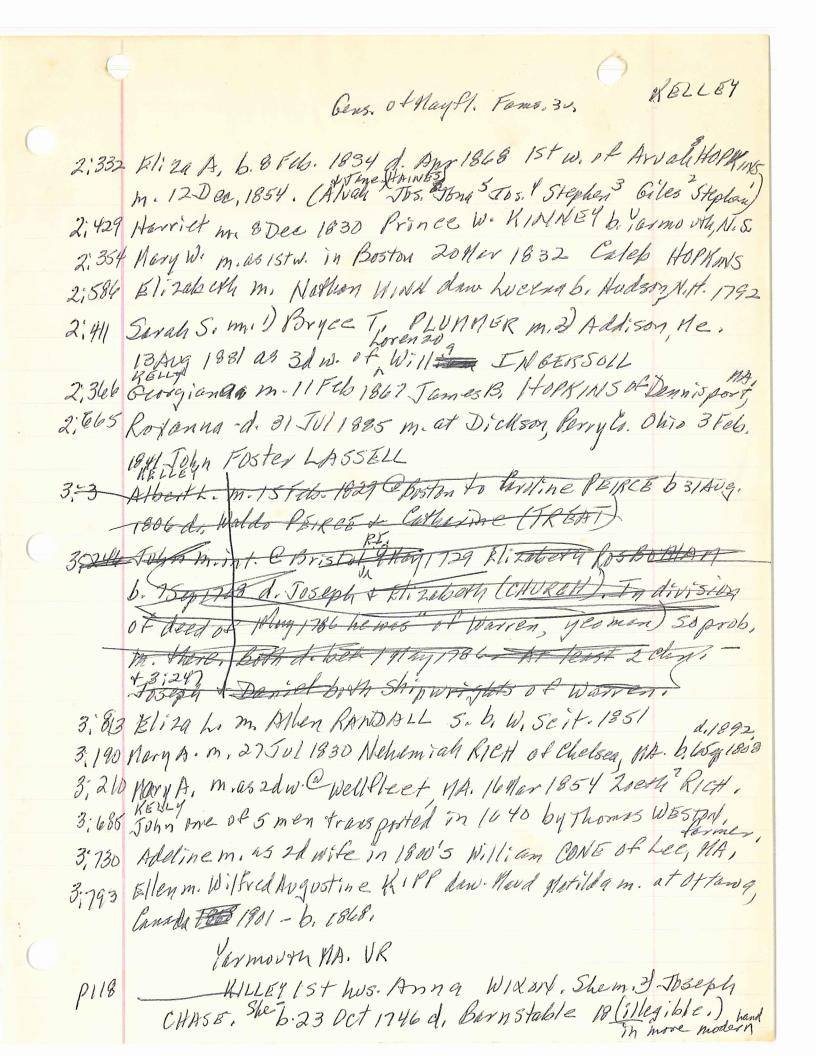 KELLEY
Gens. of Mayfl. Fams. 3v.
2:332 Eliza A, b. 8 Feb. 1834 d. Apr 1868 1st w. of Arvah HOPKINS
+ Jane HAINES
m. 12 Dec, 1854. (Alvah Jos. Jona 5 Jos. 4 Stephen 3 Giles 2 Stephen 1)
2:429 Harriet m. 8 Dec 1830 Prince W. KINNEY b. Yarmouth, N.S.
2:354 Mary W. m. as 1st w. in Boston 20 Mar 1832 Caleb HOPKINS
2:586 Elizabeth m. Nathan WINN dau Lucena b. Hudson, N.H. 1792
2:411 Sarah S. m. 1) Bryce T. PLUMMER m. 2) Addison, Me.
Lorenzo
13 Aug 1881 as 3d w. of ^ Will INGERSOLL
KELLY MA,
2:366 Georgiana m. 11 Feb 1867 James B. HOPKINS of Dennisport,
2:665 Roxanna - d. 31 Jul 1885 m. at Dickson, Perry Co. Ohio 3 Feb.
1841 John Foster LASSELL
KELLEY
3:3 Albert L. m. 15 Feb. 1829 @ Boston to Caroline PEIRCE b 31 Aug.
1806 d. Waldo PEIRCE & Catharine (TREAT)
R.I.
3:246 John m. int. @ Bristol 9 May 1729 Elizabeth BOSWORTH
b. 7 Sep d. Joseph & Elizabeth (CHURCH) In division
of deed of May 1786 he was "of Warren, yeoman) so prob.
m. there. Both d. bet 1 May 1786. At least 2 chn. -
+ 3:247
Joseph & Daniel both shipwrights of Warren.
3:813 Eliza L. m. Allen RANDALL s. b. W. Scit. 1851
d. 1892,
3:190 Mary A. m. 27 Jul 1830 Nehemiah RICH of Chelsea, MA. b. 6 Sep 1808
3:210 Mary A, m. as 2d w. @ Wellfleet, MA. 16 Mar 1854 Zoeth 7 RICH.
KELLY
3:685 John one of 5 men transported in 1640 by Thomas WESTON,
farmer,
3:730 Adeline m. as 2d wife in 1800's William CONE of Lee, MA,
3:793 Ellen m. Wilfred Augustine KIPP dau. Maud Matilda m. at Ottawa,
Canada 1901 - b. 1868.
Yarmouth MA. VR
p118 KILLEY 1st hus. Anna WIXON. She m. 2) Joseph
CHASE. She b. 23 Oct 1746 d. Barnstable 18 (illegible.) hand
in more modern